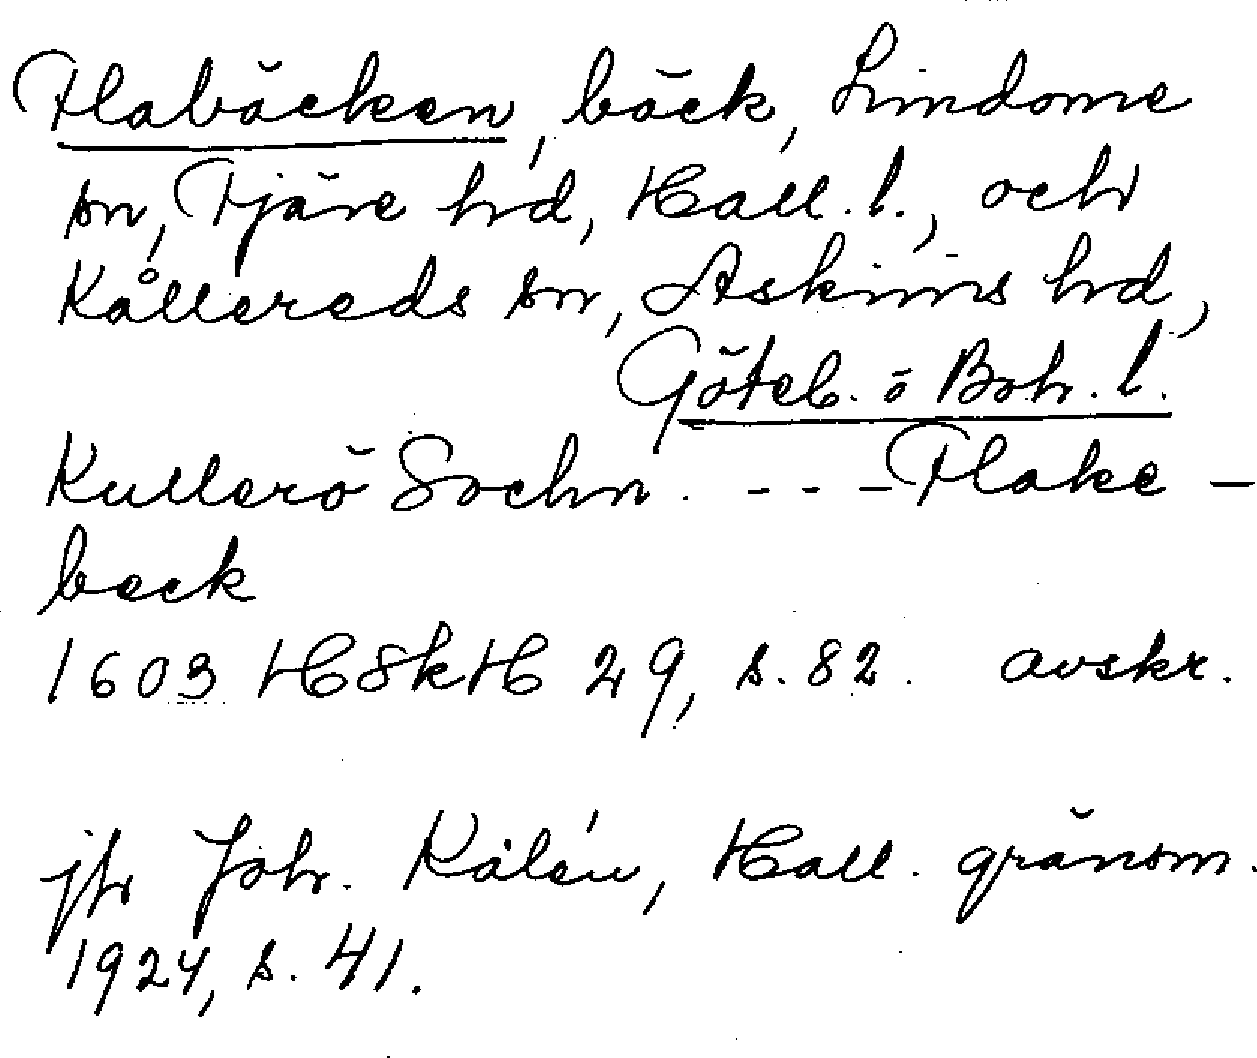 Flabäcken, bäck, Lindome
sn, Fjäre hrd, Hall. l., och
Kållereds sn, Askims hrd,
Göteb. o Boh. l.
Kullerö Sochn. - - - Flake-
beck
1603 HSkH 29, s. 82. avskr.
jfr Joh. Kalén, Hall. gränsm.
1924, s. 41.